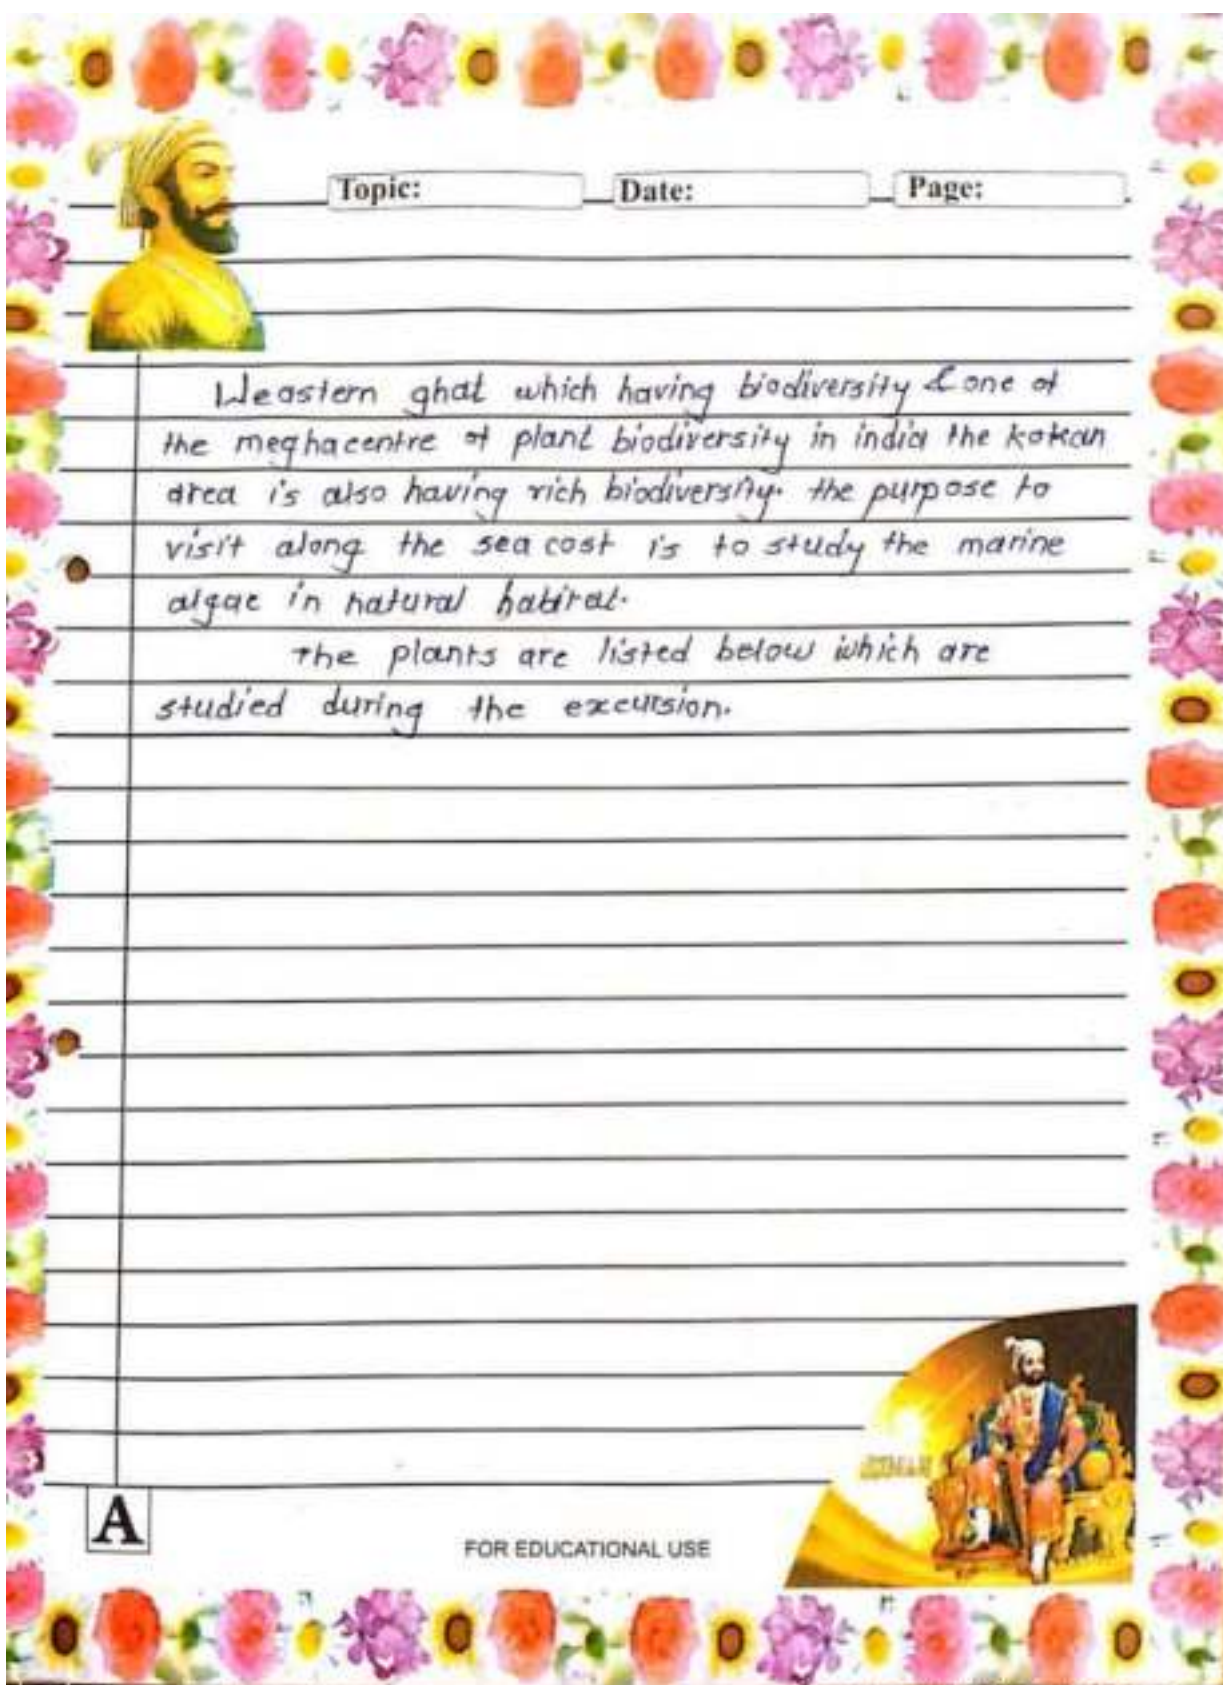 Topic: Date: Page:
Weastern ghat which having biodiversity & one of
the meghacentre of plant biodiversity in india the kokan
area is also having rich biodiversity. the purpose to
visit along the sea cost is to study the marine
algae in natural habitat.
The plants are listed below which are
studied during the excursion.
A
FOR EDUCATIONAL USE